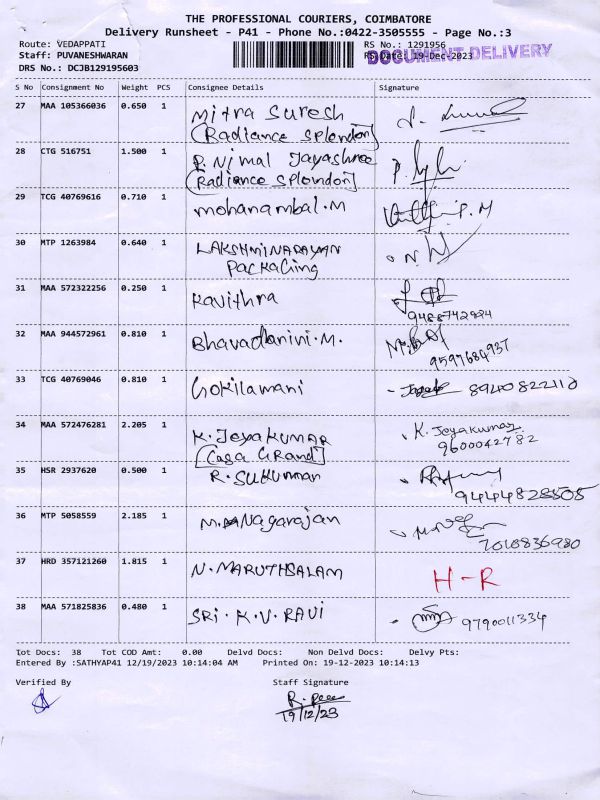 THE PROFESSIONAL COURIERS, COIMBATORE
Delivery Runsheet - P41 - Phone No.:0422-3505555 - Page No.:3
Route: VEDAPPATI RS No.: 1291956
Staff: PUVANESHWARAN RS Date: 19-Dec-2023
DOCUMENT DELIVERY
DRS No.: DCJB129195603
S No Consignment No Weight PCS Consignee Details Signature
27 MAA 105366036 0.650 1 Mitra Suresh
(Radiance Splendor)
28 CTG 516751 1.500 1 P. Nimal Jayashree
(Radiance Splendor)
29 TCG 40769616 0.710 1 mohanambal.M P.M
30 MTP 1263984 0.640 1 LAKSHMINARAYAN
Packaging
31 MAA 572322256 0.250 1 Kavithra
32 MAA 944572961 0.810 1 Bhavadharini.M.
9597684937
33 TCG 40769046 0.810 1 Gokilamani 8940822110
34 MAA 572476281 2.205 1 K. JeyaKUMAR K. Jeyakumar
[Casa Grand] 9600042782
35 HSR 2937620 0.500 1 R. SuKumar
9444828505
36 MTP 5058559 2.185 1 M. Nagarajan
7010836980
37 HRD 357121260 1.815 1 N. MARUTHSALAM H-R
38 MAA 571825836 0.480 1 SRI. K.V. RAVI 9790011334
Tot Docs: 38 Tot COD Amt: 0.00 Delvd Docs: Non Delvd Docs: Delvy Pts:
Entered By :SATHYAP41 12/19/2023 10:14:04 AM Printed On: 19-12-2023 10:14:13
Verified By Staff Signature
19/12/23